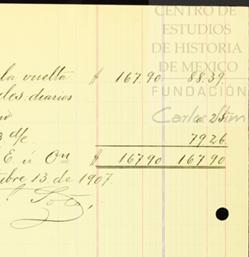 CENTRO DE
ESTUDIOS
DE HISTORIA
DE MEXICO
FUNDACIÓN
Carlos Slim
la vuelta $ 167.90 88.39
les diarios
.25
79.26
E. ú On 167.90 167.90
bre 13 de 1907